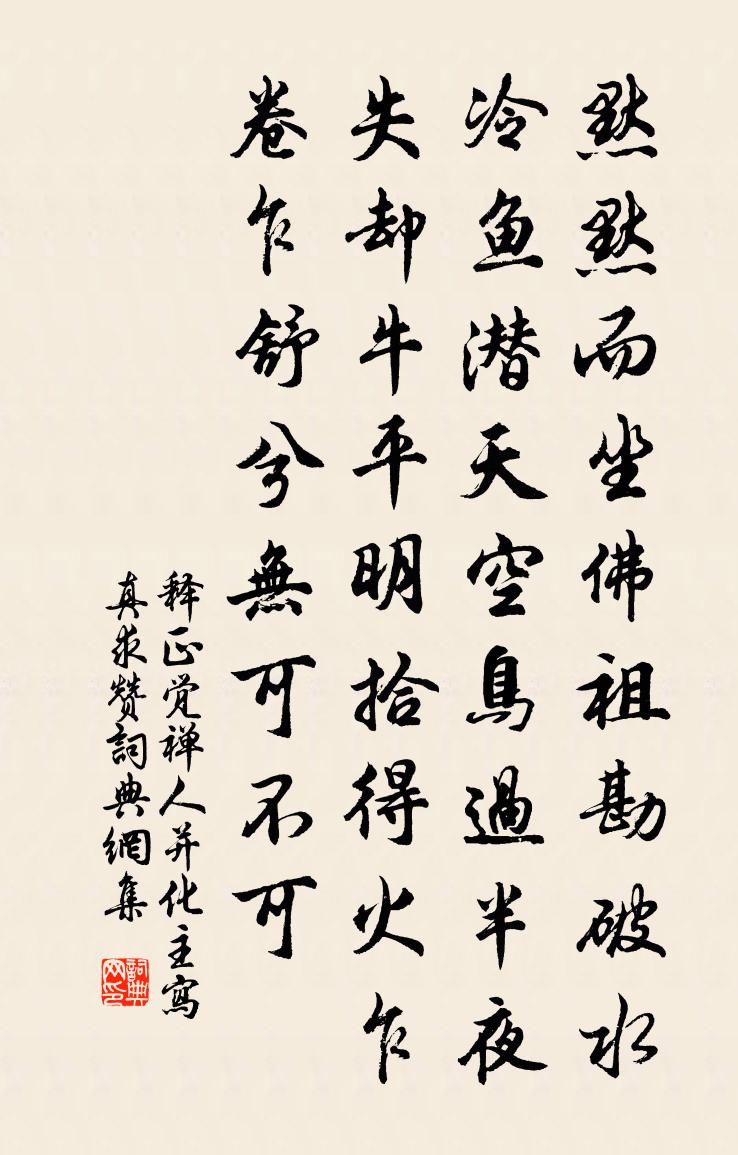 默默而坐佛祖勘破水
冷鱼潜天空鳥過半夜
失却牛平明拾得火乍
卷乍舒兮無可不可
释正觉禅人并化主寫
真求赞詞典網集
詞典网印